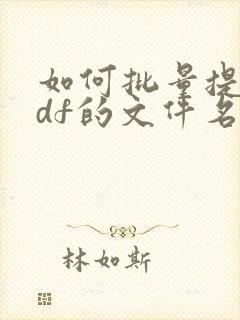 如何批量提
df的文件名
林如斯